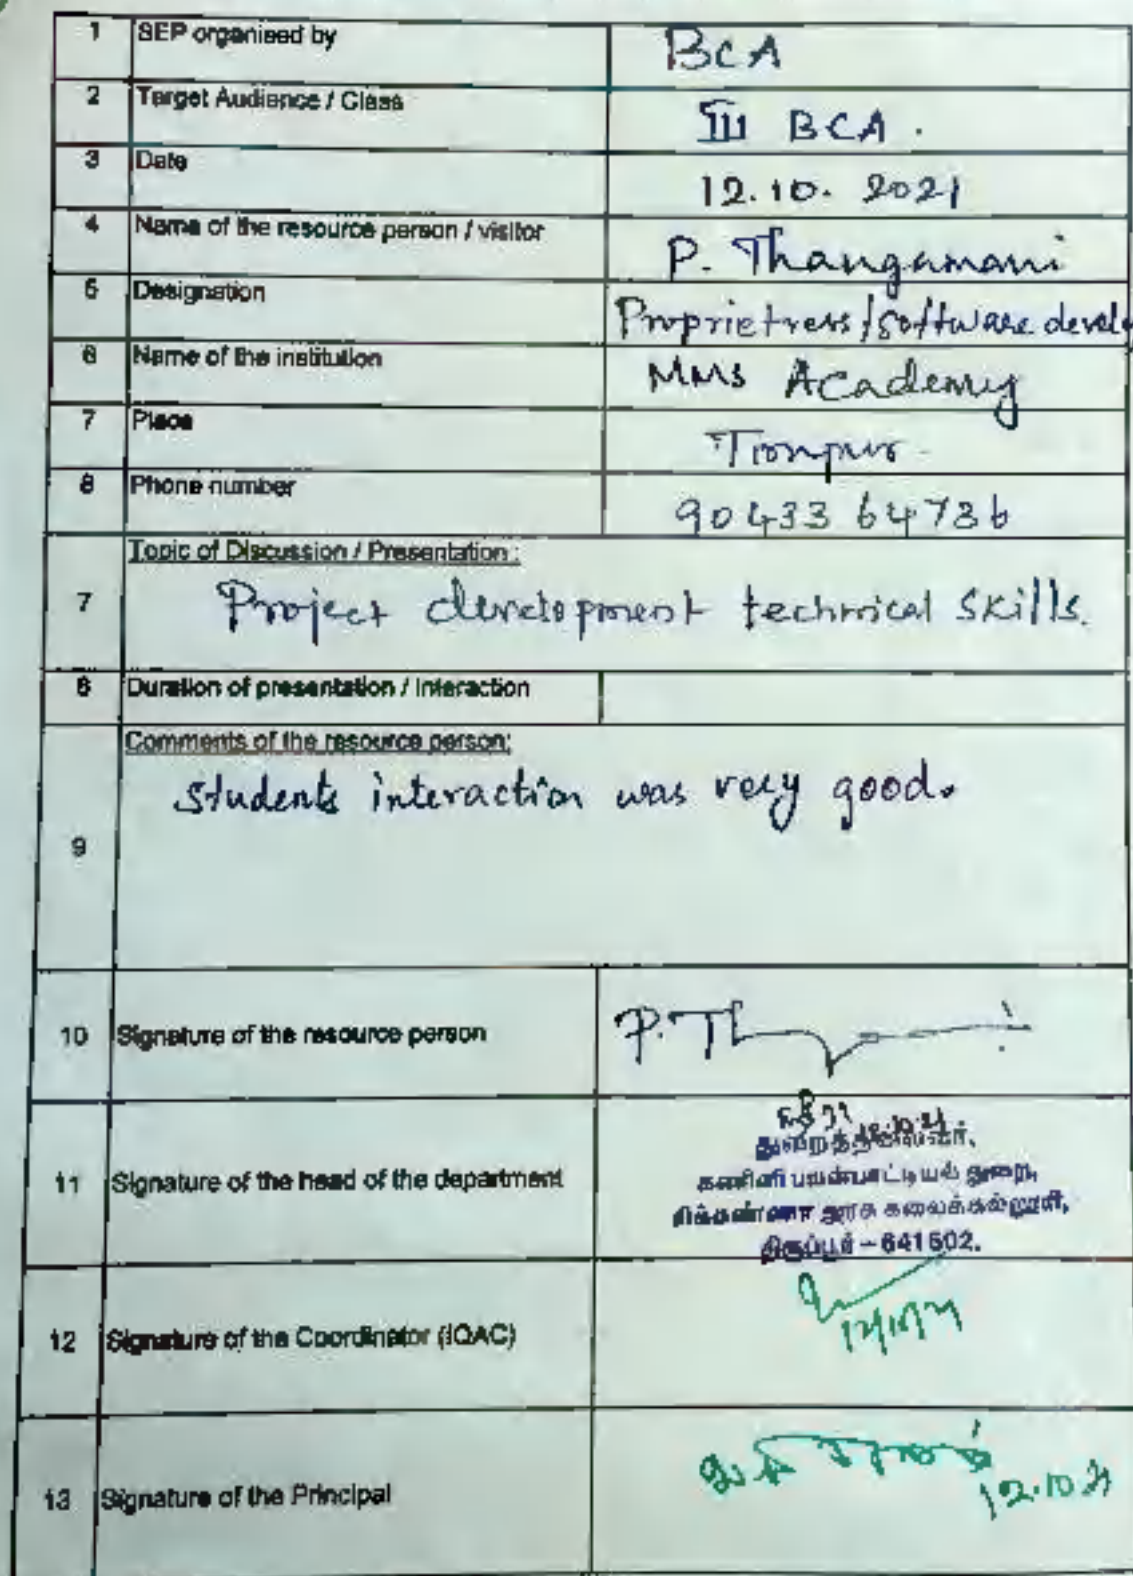 1 SEP organised by BCA
2 Target Audience / Class III BCA.
3 Date 12.10.2021
4 Name of the resource person / visitor P. Thangamani
5 Designation Proprietress/software develo
6 Name of the institution MMS Academy
7 Place Tirupur.
8 Phone number 90433 64736
Topic of Discussion / Presentation :
7 Project development technical skills.
8 Duration of presentation / Interaction
Comments of the resource person:
Students interaction was very good.
9
10 Signature of the resource person P. Th
12.10.21
துறைத்தலைவர்,
11 Signature of the head of the department கணினி பயன்பாட்டியல் துறை,
சிக்கண்ணா அரசு கலைக்கல்லூரி,
திருப்பூர் - 641602.
12 Signature of the Coordinator (IQAC) 12/10/21
13 Signature of the Principal 12.10.21